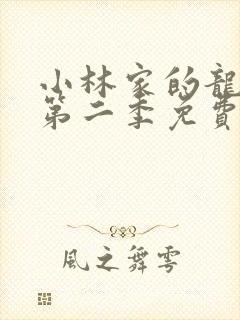 小林家的龍
第二季免費
風之舞雩